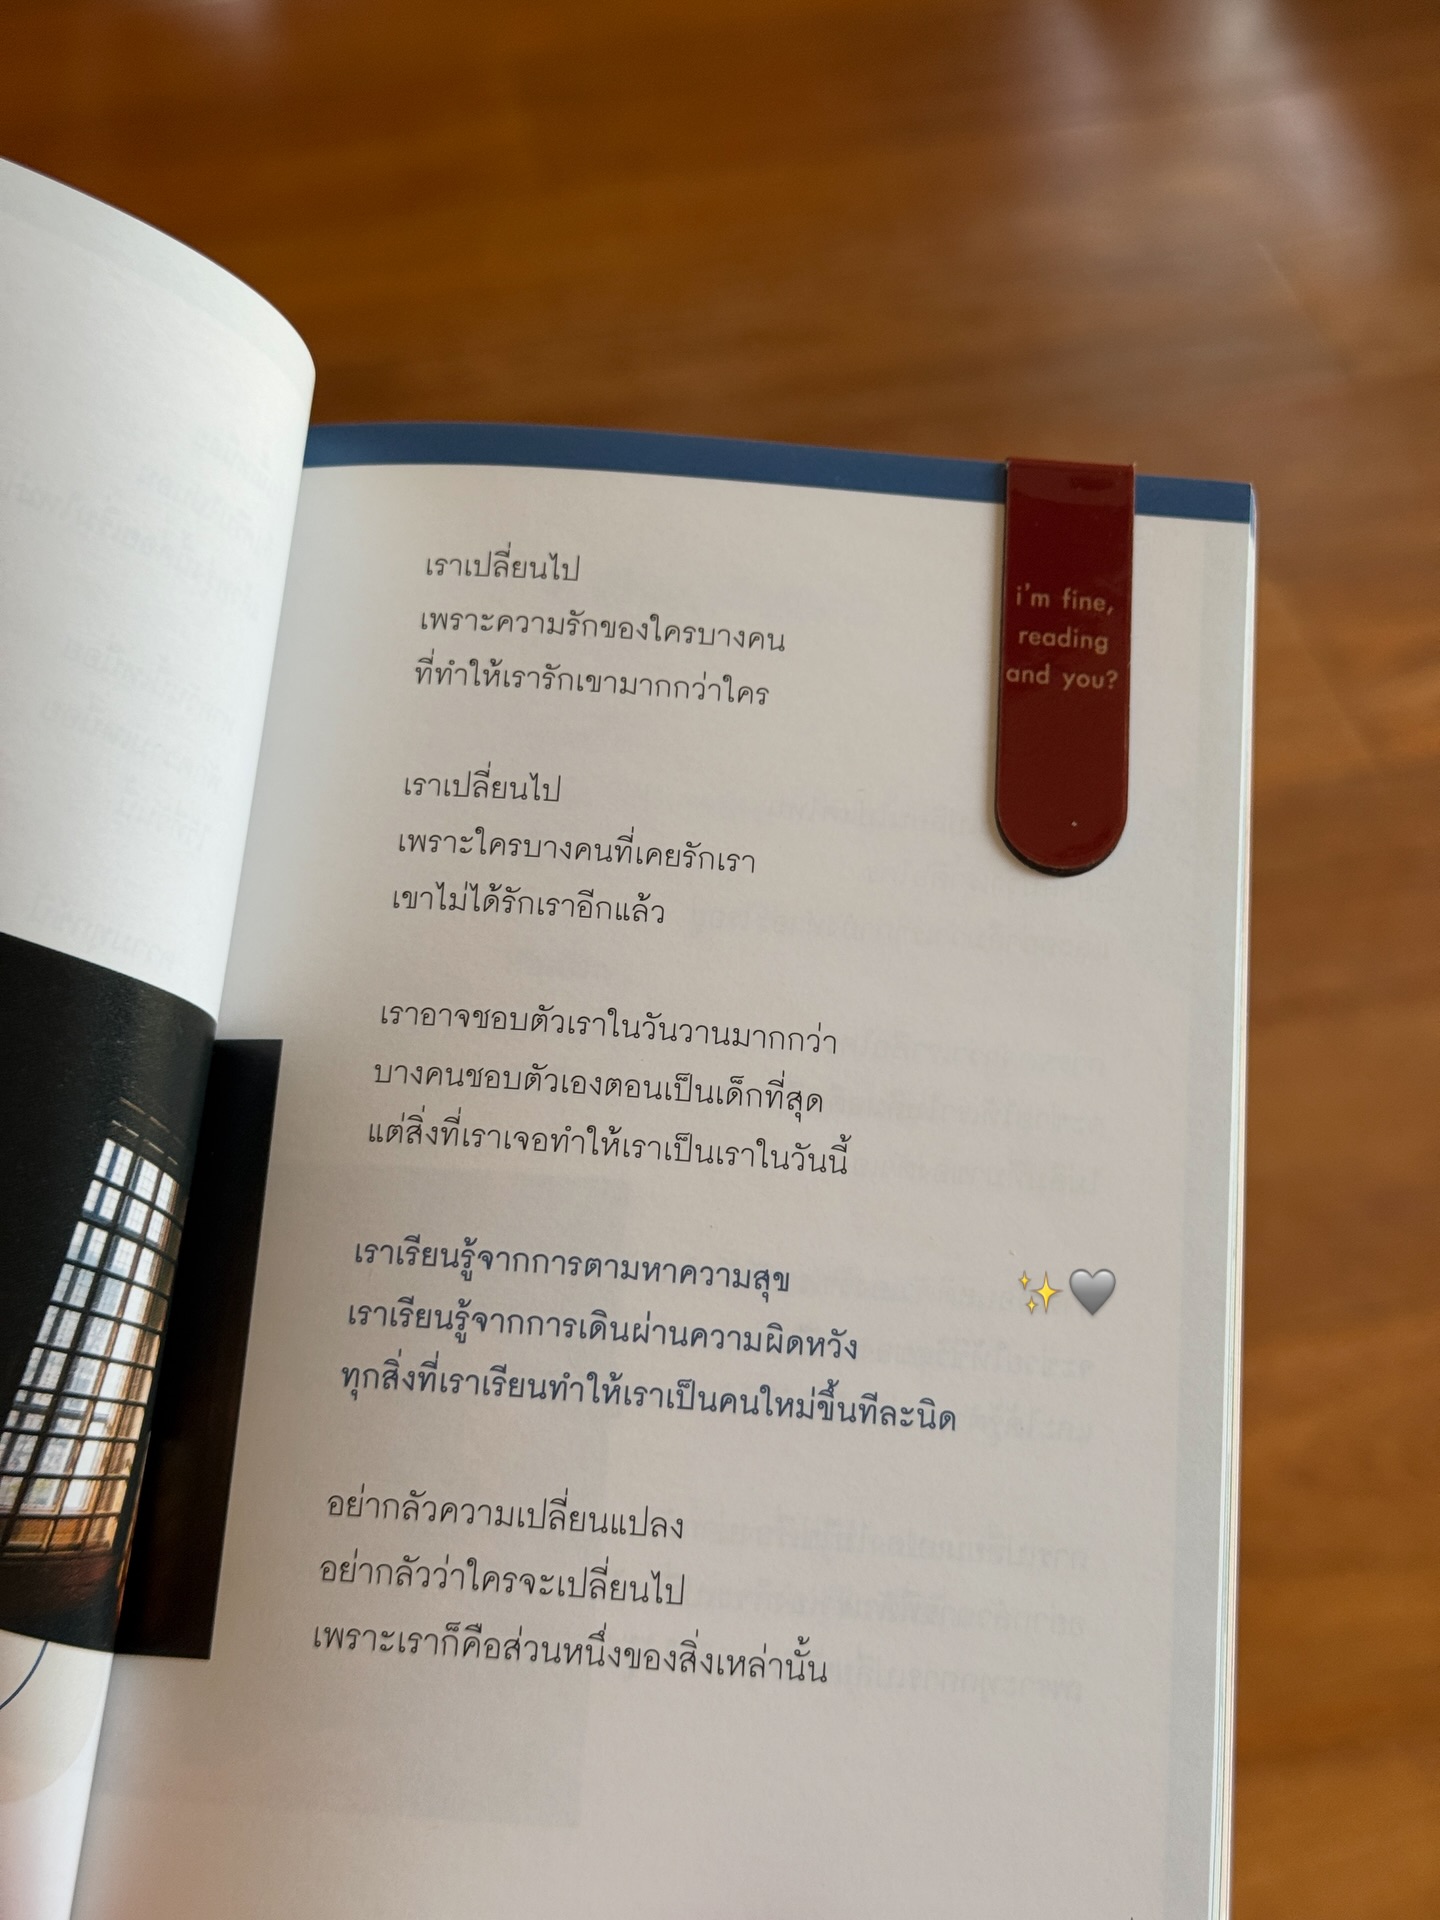 เราเปลี่ยนไป
เพราะความรักของใครบางคน
ที่ทำให้เรารักเขามากกว่าใคร
เราเปลี่ยนไป
เพราะใครบางคนที่เคยรักเรา
เขาไม่ได้รักเราอีกแล้ว
เราอาจชอบตัวเราในวันวานมากกว่า
บางคนชอบตัวเองตอนเป็นเด็กที่สุด
แต่สิ่งที่เราเจอทำให้เราเป็นเราในวันนี้
เราเรียนรู้จากการตามหาความสุข
เราเรียนรู้จากการเดินผ่านความผิดหวัง
ทุกสิ่งที่เราเรียนทำให้เราเป็นคนใหม่ขึ้นทีละนิด
อย่ากลัวความเปลี่ยนแปลง
อย่ากลัวว่าใครจะเปลี่ยนไป
เพราะเราก็คือส่วนหนึ่งของสิ่งเหล่านั้น
i'm fine,
reading
and you?